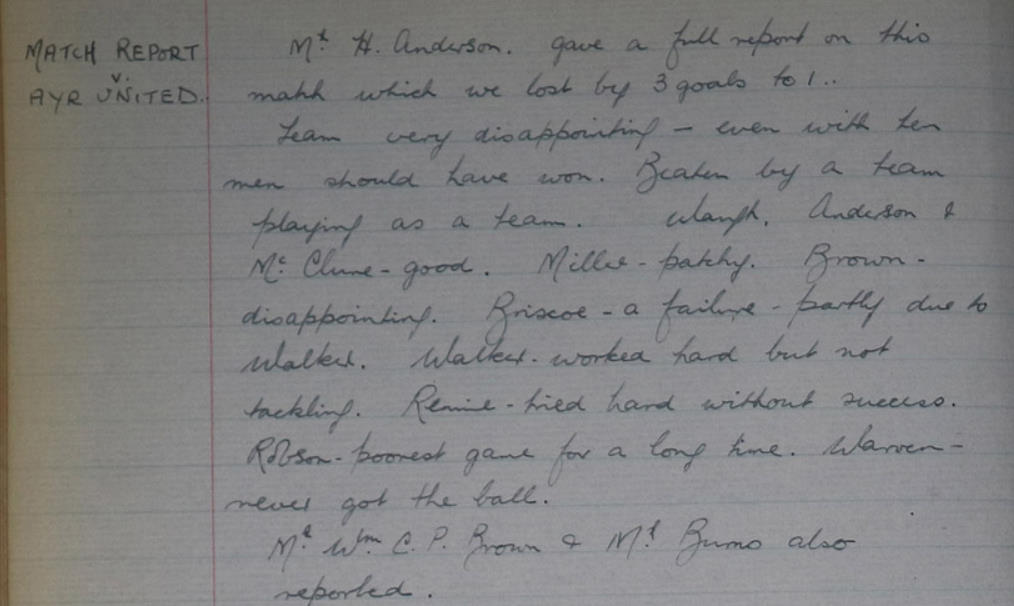 MATCH REPORT
V.
AYR UNITED.
Mr. H. Anderson. gave a full report on this
match which we lost by 3 goals to 1..
Team very disappointing - even with ten
men should have won. Beaten by a team
playing as a team. Waugh, Anderson &
Mc Clune - good. Miller - patchy. Brown -
disappointing. Briscoe - a failure - partly due to
Walker. Walker - worked hard but not
tackling. Rennie - tried hard without success.
Robson - poorest game for a long time. Warren -
never got the ball.
Mr Wm. C. P. Brown & Mr. Burns also
reported.